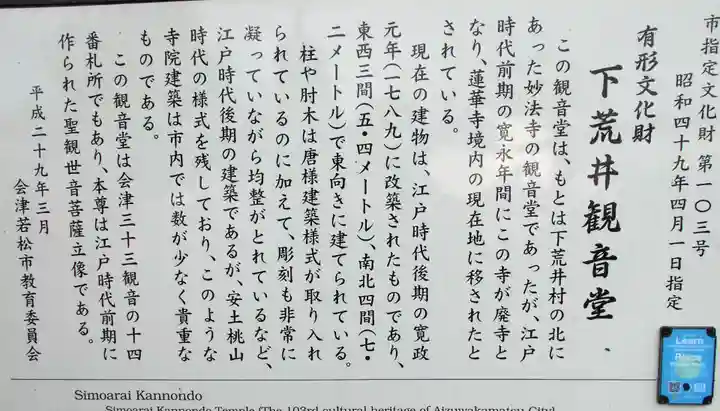 市指定文化財 第一〇三号
昭和四十九年四月一日指定
有形文化財
下荒井観音堂
この観音堂は、もとは下荒井村の北に
あった妙法寺の観音堂であったが、江戸
時代前期の寛永年間にこの寺が廃寺と
なり、蓮華寺境内の現在地に移されたと
されている。
現在の建物は、江戸時代後期の寛政
元年(一七八九)に改築されたものであり、
東西三間(五・四メートル)、南北四間(七・
二メートル)で東向きに建てられている。
柱や肘木は唐様建築様式が取り入れ
られているのに加えて、彫刻も非常に
凝っていながら均整がとれているなど、
江戸時代後期の建築であるが、安土桃山
時代の様式を残しており、このような
寺院建築は市内では数が少なく貴重な
ものである。
この観音堂は会津三十三観音の十四
番札所でもあり、本尊は江戸時代前期に
作られた聖観世音菩薩立像である。
平成二十九年三月
会津若松市教育委員会
Simoarai Kannondo
Simoarai Kannondo Temple (The 103rd cultural heritage of Aizuwakamatsu City)
Learn
Place